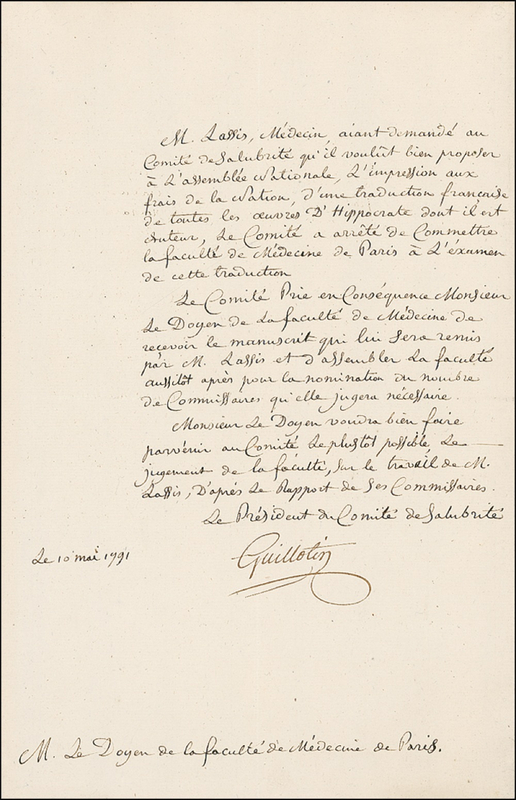 M. Lassis, Médecin, aiant demandé au
Comité de Salubrité qu'il voulût bien proposer
à L'assemblée Nationale, L'impression aux
frais de la Nation, d'une traduction française
de toutes les œuvres D'Hippocrate dont il est
Auteur, Le Comité a arrêté de Commettre
la faculté de Médecine de Paris à L'éxamen
de cette traduction
Le Comité Prie en Conséquence Monsieur
Le Doyen de La faculté de Médecine de
recevoir le manuscrit qui lui Sera remis
par M. Lassis et d'assembler La faculté
aussitôt après pour la nomination du nombre
de Commissaires qu'elle jugera nécessaire.
Monsieur Le Doyen voudra bien faire
parvenir au Comité Le plustôt possible Le
jugement de la faculté, sur le travail de M.
Lassis, D'après Le Rapport de Ses Commissaires.
Le Président du Comité de Salubrité
Guillotin
Le 10 mai 1791
M. Le Doyen de la faculté de Médecine de Paris.